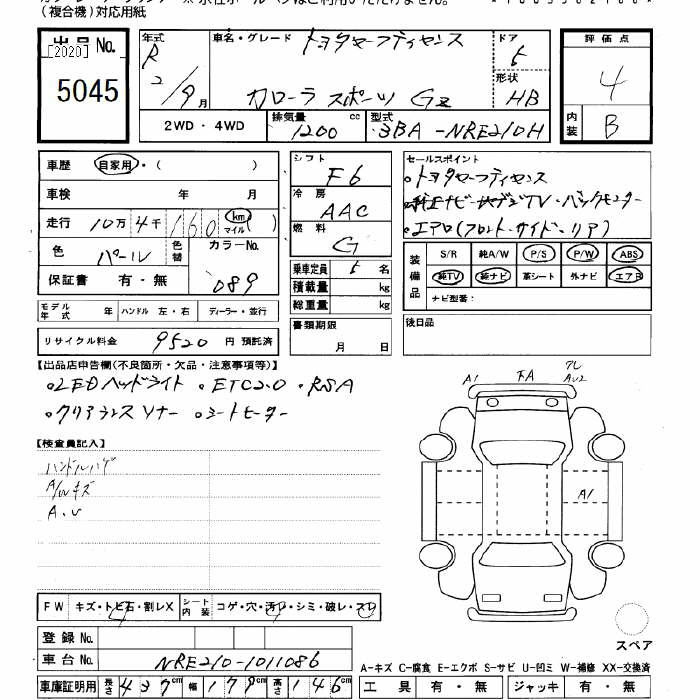 (複合機)対応用紙
出品 No.
[2020]
5045
年式
R
2/9月
車名・グレード トヨタセーフティセンス
カローラ スポーツ GZ
ドア
5
形状
HB
評価点
4
内装
B
2WD・4WD
排気量 cc
1200
型式
3BA-NRE210H
車歴 自家用・( )
車検 年 月
走行 10万4千160 km マイル ( )
色 パール
色替
カラーNo.
089
保証書 有・無
シフト
F6
冷房
AAC
燃料
G
乗車定員 5 名
積載量 kg
総重量 kg
セールスポイント
。トヨタセーフティセンス
。純正ナビ・地デジTV・バックモニター
。エアロ(フロント・サイド・リア)
装備品
S/R 純A/W P/S P/W ABS
純TV 純ナビ 革シート 外ナビ エアB
ナビ型番:
モデル年式 年 ハンドル 左・右 ディーラー・並行
書類期限
月 日
後日品
リサイクル料金 9520 円 預託済
【出品店申告欄(不良箇所・欠品・注意事項等)】
。LEDヘッドライト 。ETC2.0 。RSA
。クリアランスソナー 。シートヒーター
A1 FA
AU2
A1
【検査員記入】
ハンドルハゲ
A/Wキズ
A.U
FW キズ・トビ石・割レX シート内装 コゲ・穴・汚レ・シミ・破レ・スレ
登録 No.
車台 No. NRE210-1011086
車庫証明用 長さ 437cm 幅 179cm 高さ 146cm
スペア
A-キズ C-腐食 E-エクボ S-サビ U-凹ミ W-補修 XX-交換済
工具 有・無 ジャッキ 有・無